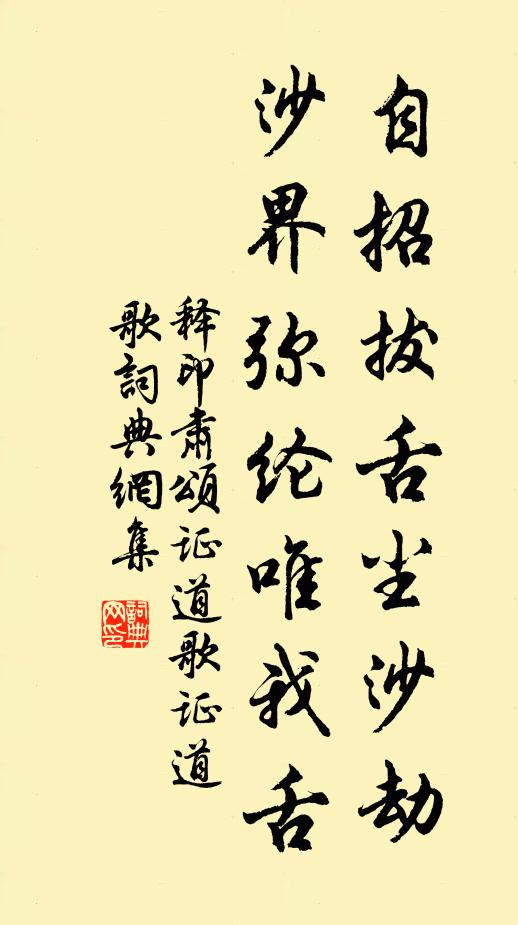 自招拔舌尘沙劫
沙界弥纶唯我舌
释印肃颂证道歌证道
歌詞典網集
詞典
网印